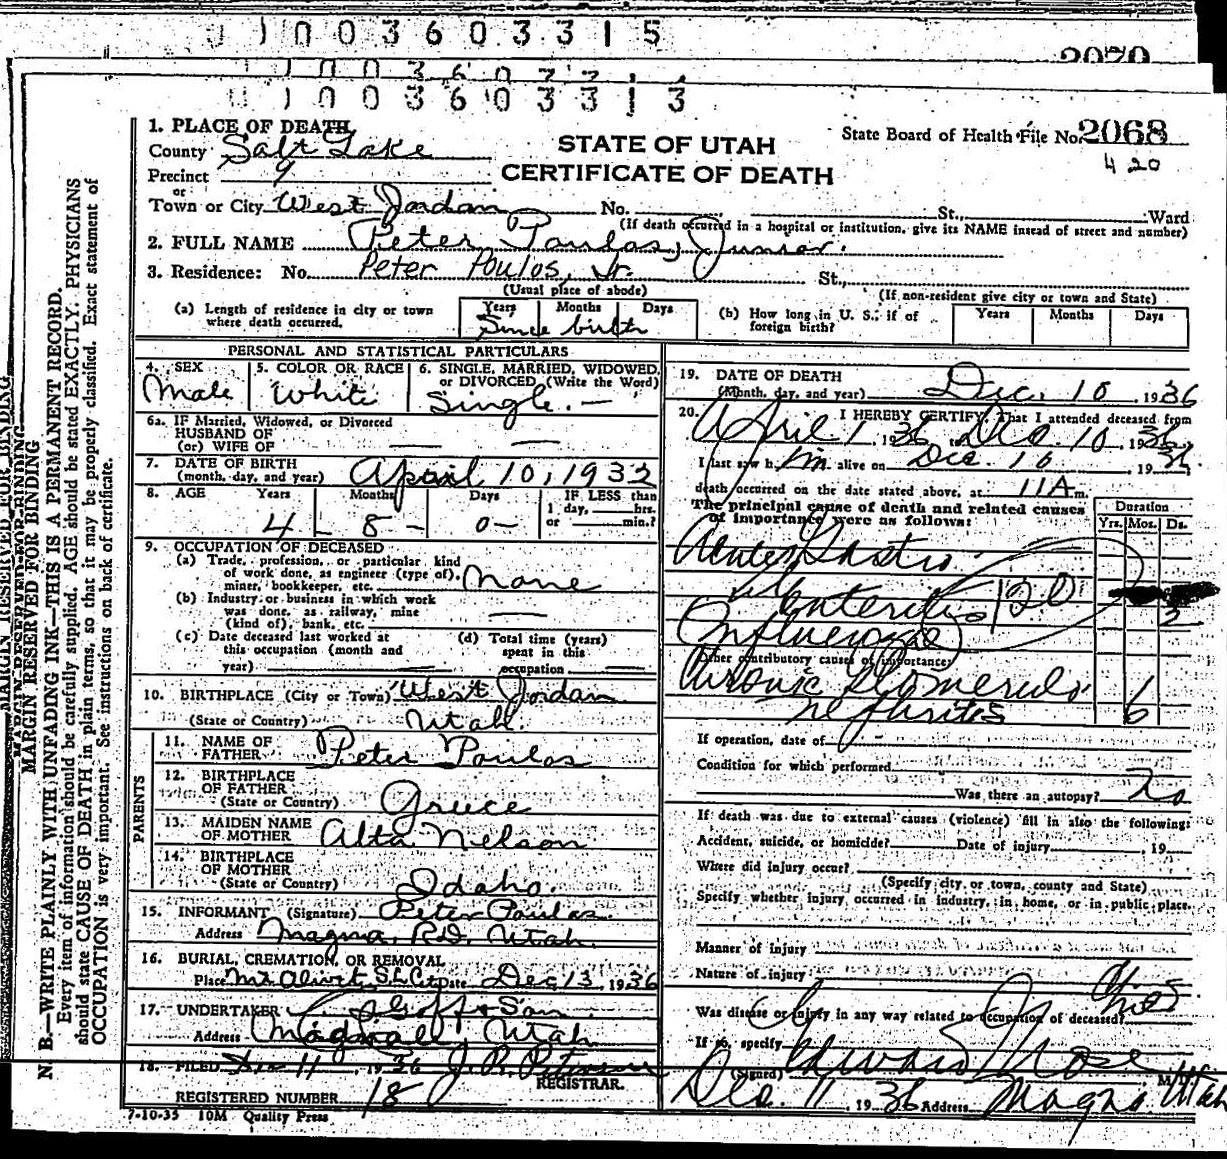 1 0 0 3 6 0 3 3 1 5
2070
1 0 0 3 6 0 3 3 1 3
State Board of Health File No. 2068
420
STATE OF UTAH
CERTIFICATE OF DEATH
1. PLACE OF DEATH
County Salt Lake
Precinct 9
or
Town or City West Jordan No. St., Ward
(If death occurred in a hospital or institution, give its NAME instead of street and number)
2. FULL NAME Peter Paulas, Junior.
3. Residence: No. Peter Poulos, Jr. St.,
(Usual place of abode) (If non-resident give city or town and State)
(a) Length of residence in city or town where death occurred. Years Months Days
Since birth
(b) How long in U. S., if of foreign birth? Years Months Days
PERSONAL AND STATISTICAL PARTICULARS
4. SEX Male
5. COLOR OR RACE White
6. SINGLE, MARRIED, WIDOWED, or DIVORCED (Write the Word) Single.
6a. IF Married, Widowed, or Divorced
HUSBAND OF
(or) WIFE OF
7. DATE OF BIRTH
(month, day, and year) April 10, 1932
8. AGE Years Months Days IF LESS than
1 day, hrs.
or min.?
4 8 - 0 -
9. OCCUPATION OF DECEASED
(a) Trade, profession, or particular kind
of work done, as engineer (type of),
miner, bookkeeper, etc. None
(b) Industry or business in which work
was done, as railway, mine
(kind of), bank, etc.
(c) Date deceased last worked at
this occupation (month and
year)
(d) Total time (years)
spent in this
occupation
10. BIRTHPLACE (City or Town) West Jordan
(State or Country) Utah.
PARENTS
11. NAME OF
FATHER Peter Paulas
12. BIRTHPLACE
OF FATHER
(State or Country) Greece
13. MAIDEN NAME
OF MOTHER Alta Nelson
14. BIRTHPLACE
OF MOTHER
(State or Country) Idaho.
15. INFORMANT (Signature) Peter Paulas
Address Magna, R.D. Utah.
16. BURIAL, CREMATION, OR REMOVAL
Place Mt Olivet S.L. City Date Dec 13, 1936
17. UNDERTAKER Goff & Son
Address Midvale, Utah
18. FILED Dec 11, 1936 J. R. Peterson
REGISTRAR.
REGISTERED NUMBER 18
7-10-35 10M Quality Press
19. DATE OF DEATH
(Month, day, and year) Dec. 10, 1936
20. I HEREBY CERTIFY, That I attended deceased from
April 1, 1936 to Dec 10, 1936
I last saw him alive on Dec. 10, 1936
death occurred on the date stated above, at 11 A m.
The principal cause of death and related causes
of importance were as follows:
Duration
Yrs. Mos. Ds.
Acute Gastro
Enteritis 120 3
(Influenzae)
Other contributory causes of importance:
Chronic Glomerulo 6
nephrites
If operation, date of
Condition for which performed
Was there an autopsy? No
If death was due to external causes (violence) fill in also the following:
Accident, suicide, or homicide? Date of injury , 19
Where did injury occur?
(Specify city or town, county and State)
Specify whether injury occurred in industry, in home, or in public place.
Manner of injury
Nature of injury
Was disease or injury in any way related to occupation of deceased?
If so, specify
(Signed) M.D.
Dec. 11, 1936 Address Magna Utah
MARGIN RESERVED FOR BINDING
N. B.—WRITE PLAINLY WITH UNFADING INK—THIS IS A PERMANENT RECORD.
Every item of information should be carefully supplied. AGE should be stated EXACTLY. PHYSICIANS
should state CAUSE OF DEATH in plain terms, so that it may be properly classified. Exact statement of
OCCUPATION is very important. See instructions on back of certificate.